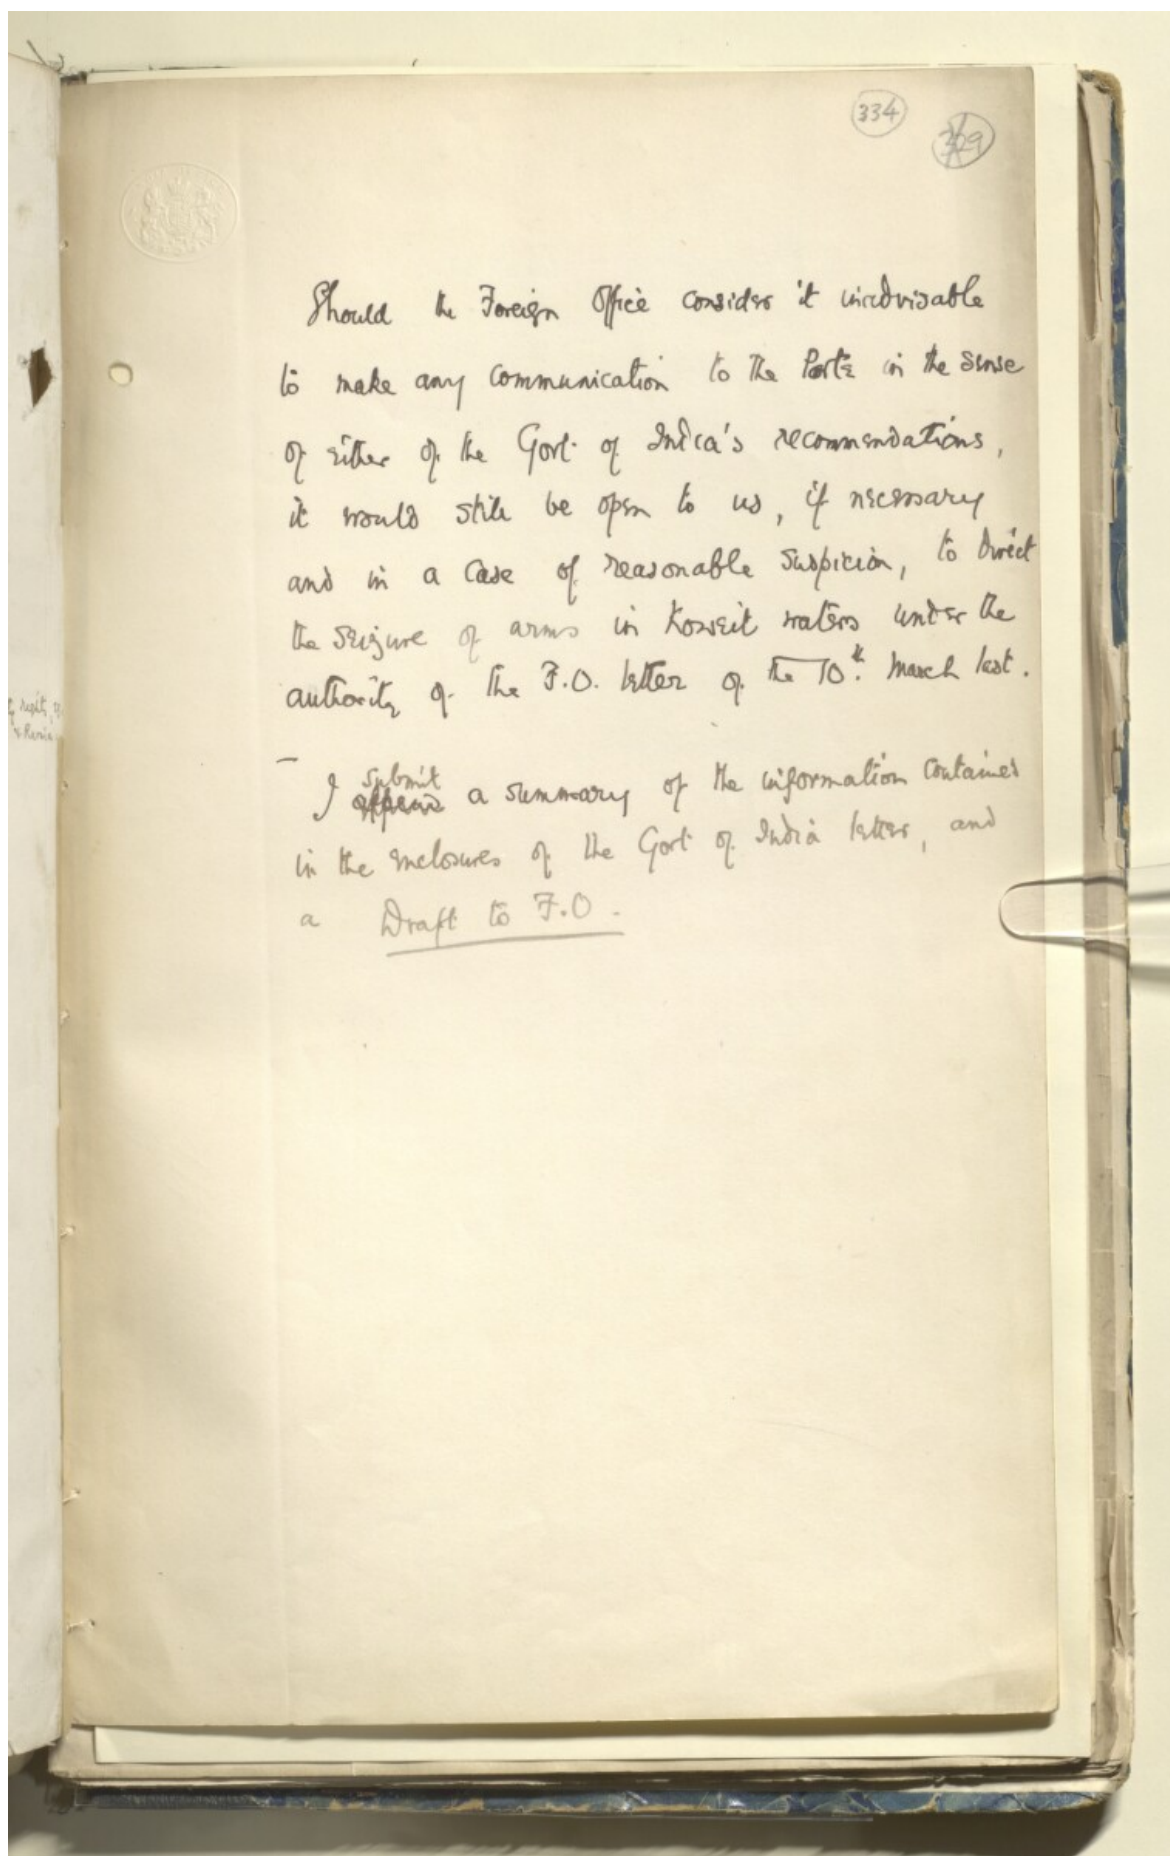 334
329
Should the Foreign Office consider it inadvisable
to make any communication to the Porte in the sense
of either of the Govt. of India's recommendations,
it would still be open to us, if necessary
and in a case of reasonable suspicion, to direct
the seizure of arms in Koweit waters under the
authority of the F.O. letter of the 10th. March last.
submit
I append a summary of the information contained
in the enclosures of the Govt of India letter, and
a Draft to F.O.
rights,